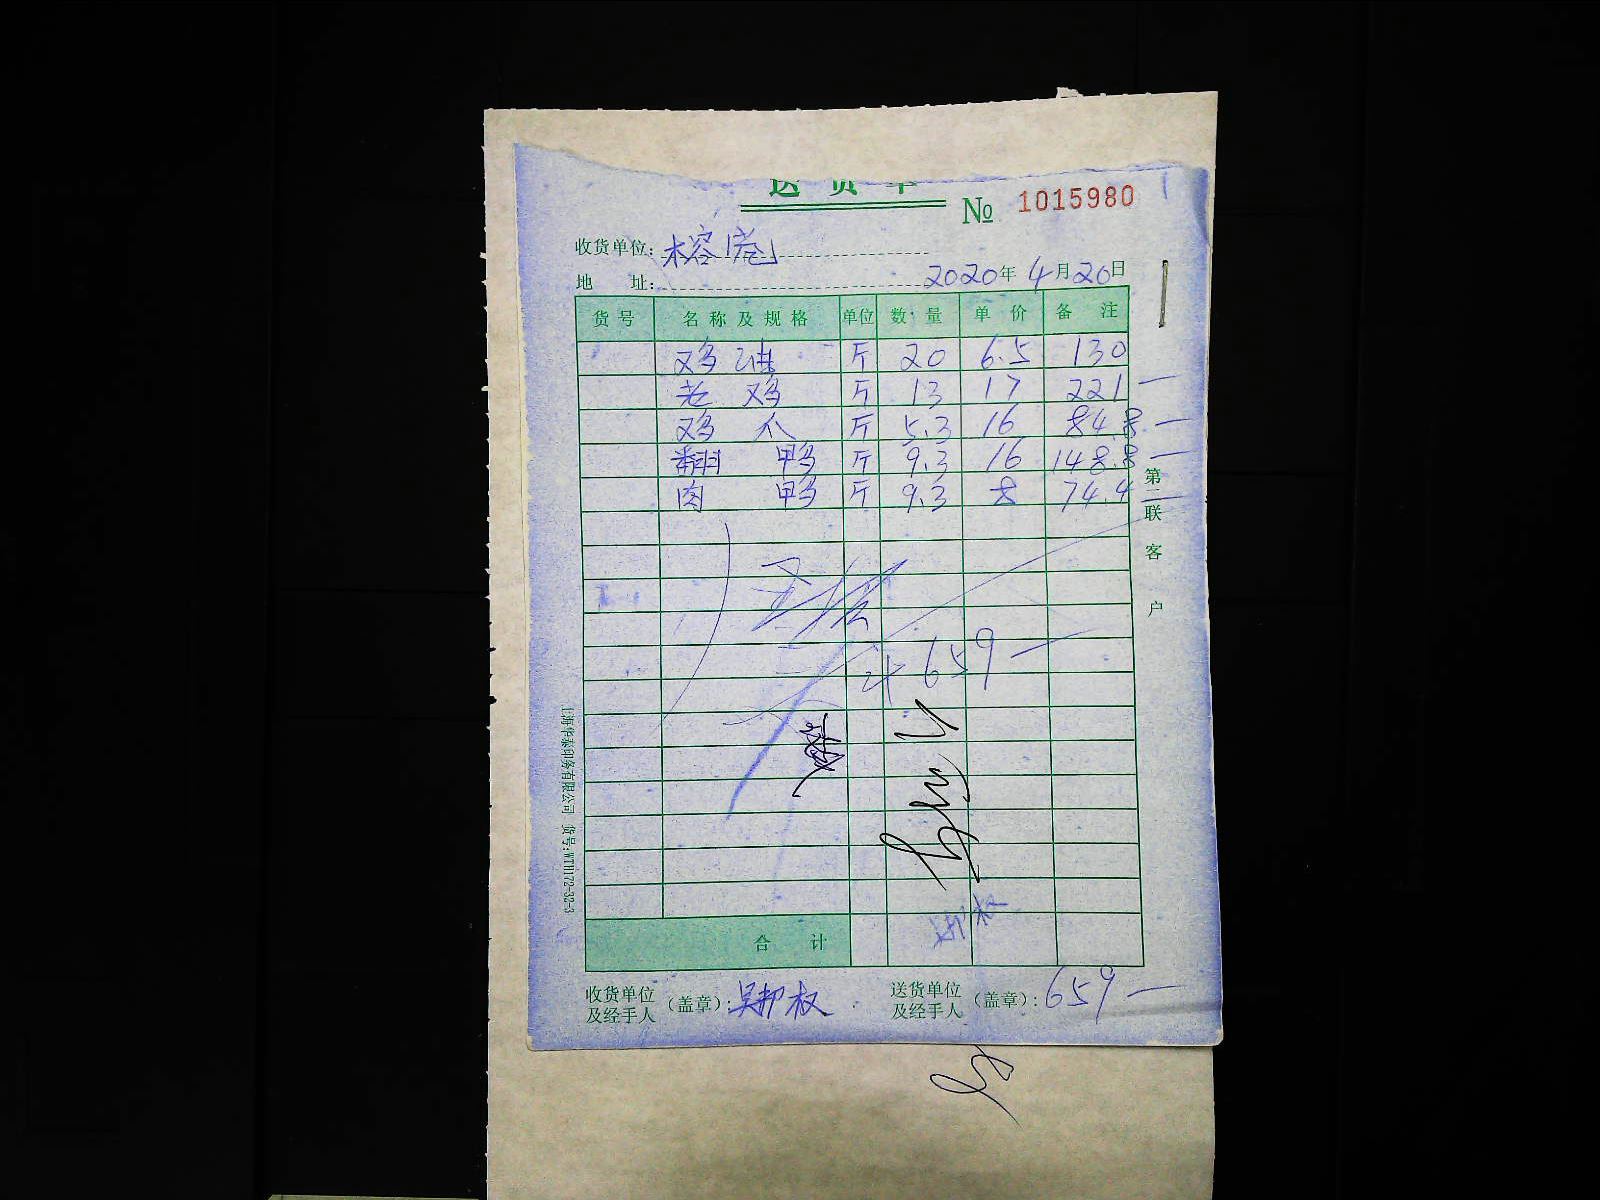 送货单
№ 1015980
收货单位: 榕庵
地 址: 2020年 4月20日
货号 名称及规格 单位 数量 单价 备注
鸡油 斤 20 6.5 130
老鸡 斤 13 17 221
鸡爪 斤 5.3 16 84.8
翻鸭 斤 9.3 16 148.8
肉鸭 斤 9.3 8 74.4
第二联 客户
计 659
上海华泰印务有限公司 货号:WTH172-32-3
合计
收货单位及经手人(盖章): 吴邦权 送货单位及经手人(盖章): 659